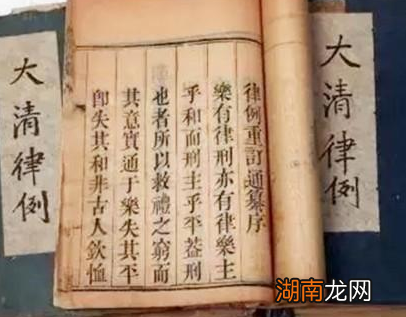 大清律例
律例重訂通纂序
樂有律刑亦有律樂主
乎和而刑主乎平葢刑
也者所以救禮之窮而
其意實通于樂失其平
卽失其和非古人欽恤
大清律例
湖南龙网